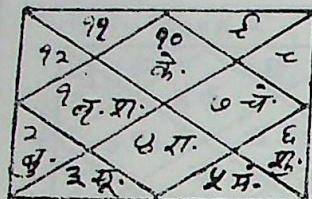 ११ १० ९
१२ के. ८
१ वृ. श. ७ चं.
२ बु. ४ रा. ६ शु.
३ सू. ५ मं.